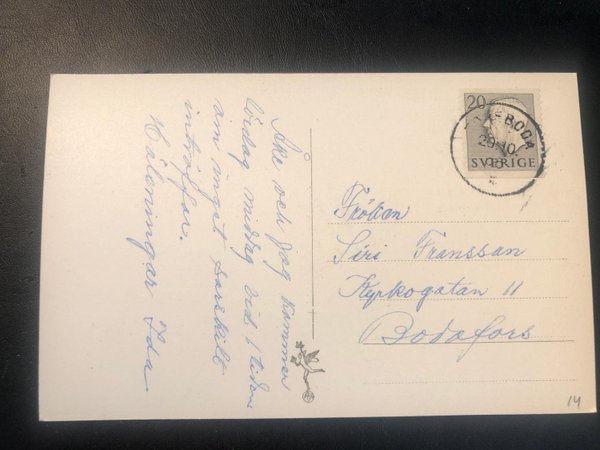 Åke och jag kommer
lördag middag vid 1 tiden
om inget särskilt
inträffar.
Hälsningar Ida
20
SVERIGE
BODA
29.10
Fröken
Siri Franssan
Kyrkogatan 11
Bodafors
14